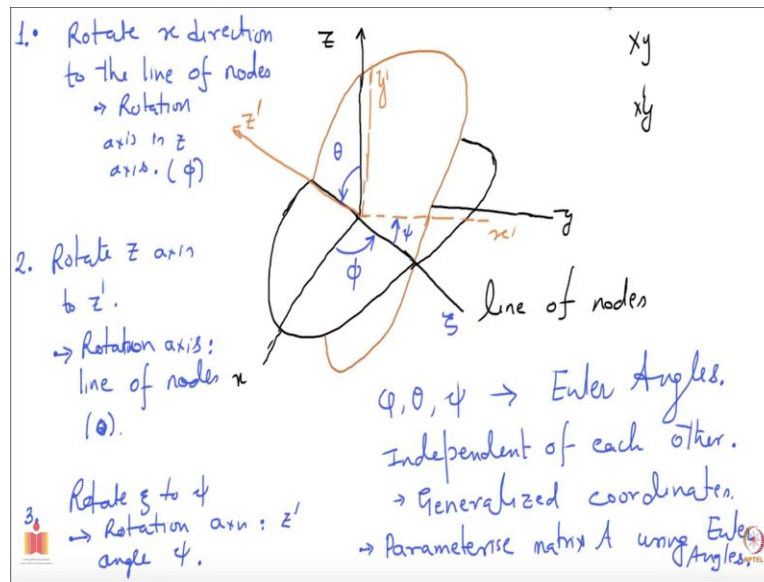 1. Rotate x direction
to the line of nodes
→ Rotation
axis in z
axis. (φ)
2. Rotate Z axis
to z'.
→ Rotation axis:
line of nodes
(θ).
3. Rotate ξ to ψ
→ Rotation axis: z'
angle ψ.
z
y'
z'
θ
ψ
φ
x'
y
ξ
line of nodes
x
xy
x'y'
φ, θ, ψ → Euler Angles.
Independent of each other.
→ Generalized coordinates.
→ Parameterise matrix A using Euler
Angles.
NPTEL